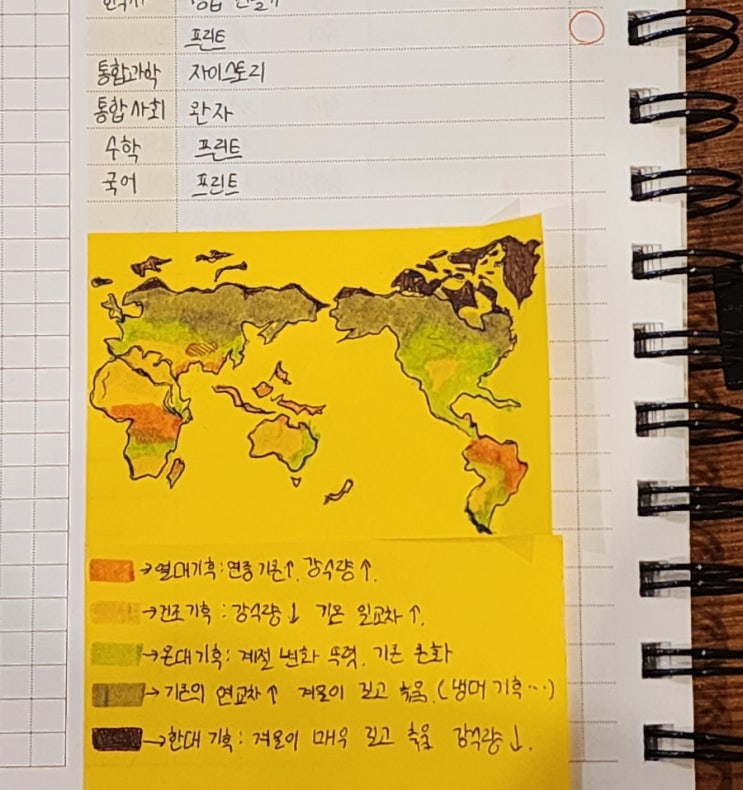 프린트
통합과학 자이스토리
통합사회 완자
수학 프린트
국어 프린트
→열대기후:연중기온↑. 강수량↑.
→건조기후 : 강수량↓ 기온 일교차↑.
→온대기후: 계절 변화 뚜렷. 기온 온화
→기온의 연교차↑ 겨울이 길고 추움. (냉대 기후…)
→한대 기후: 겨울이 매우 길고 추움 강수량↓.